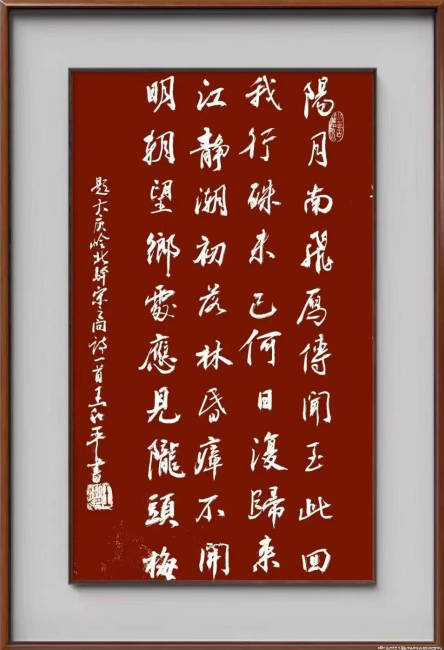 陽月南飛雁傳聞至此回
我行殊未已何日復歸來
江靜潮初落林昏瘴不開
明朝望鄉處應見隴頭梅
题大庾岭北驿宋之问诗一首王和平書